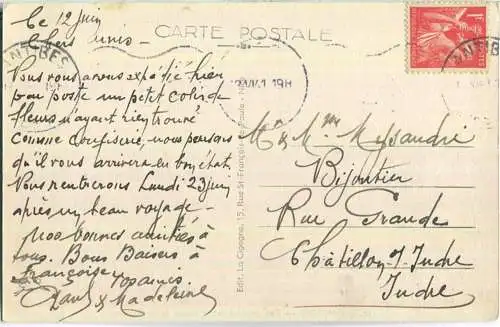 CARTE POSTALE
Le 12 juin
Chers amis
Vous vous avons expédié hier
par poste un petit colis de
fleurs n'ayant rien trouvé
comme confiserie, nous pensons
qu'il vous arrivera en bon état,
Nous rentrerons Lundi 23 juin
après un beau voyage -
Nos bonnes amitiés à
tous. Bons Baisers à
Françoise
vos amis
& Madeleine
ANTIBES
19H
Edit. La Cigogne, 15, Rue St-François-de-Paule - Nice
Mr & Mme Myssandre
Bijoutier
Rue Grande
Châtillon s/ Indre
Indre